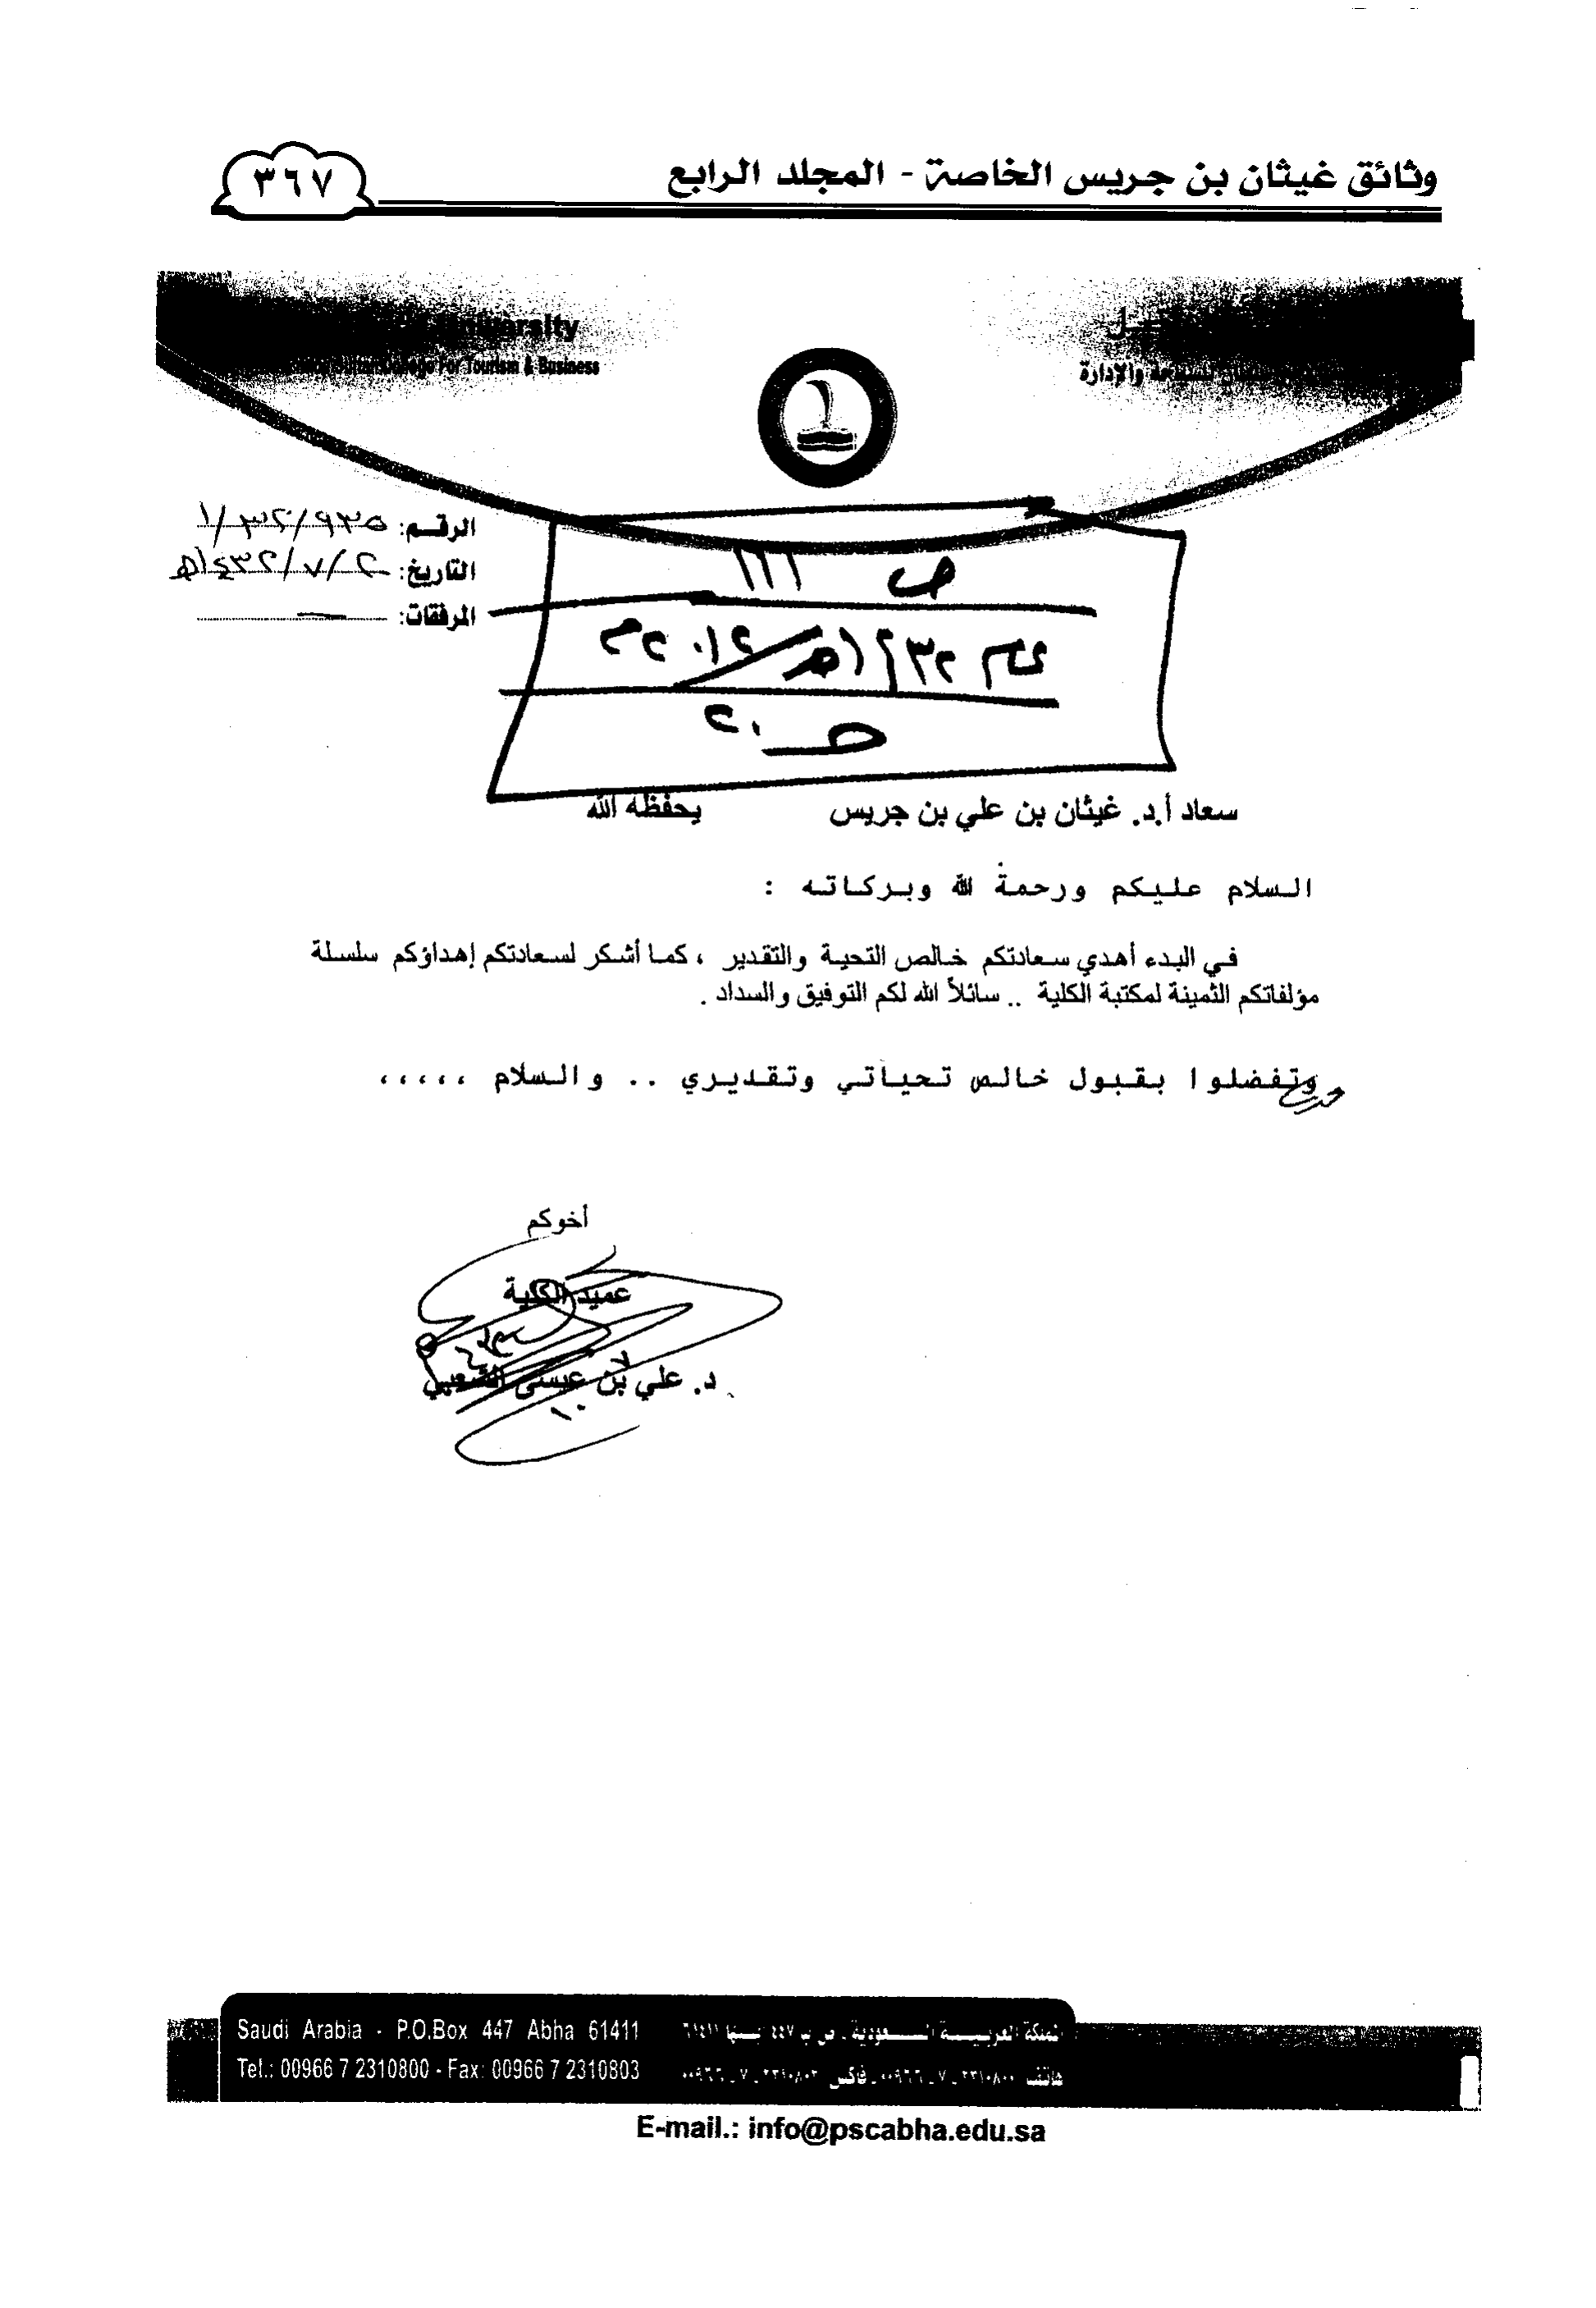 وثائق غيثان بن جريس الخاصة - المجلد الرابع
٣٦٧
University
College For Tourism & Business
للسياحة والإدارة
الرقم: ١/٣٢/٩٣٥
التاريخ: ٢/٧/١٤٣٢هـ
المرفقات:
ص ١١١
عام ١٤٣٢هـ/٢٠١٢م
ص ٢٠
سعاد أ.د. غيثان بن علي بن جريس يحفظه الله
السلام عليكم ورحمة الله وبركاته :
في البدء أهدي سعادتكم خالص التحية والتقدير ، كما أشكر لسعادتكم إهداؤكم سلسلة
مؤلفاتكم الثمينة لمكتبة الكلية .. سائلاً الله لكم التوفيق والسداد .
وتفضلوا بقبول خالص تحياتي وتقديري .. والسلام ،،،،،
أخوكم
عميد الكلية
د. علي بن عيسى الشعبي
Saudi Arabia - P.O.Box 447 Abha 61411
Tel.: 00966 7 2310800 - Fax: 00966 7 2310803
المملكة العربية السعودية - ص ب ٤٤٧ أبها ٦١٤١١
هاتف ٢٣١٠٨٠٠ - ٧ - ٠٠٩٦٦ - فاكس ٢٣١٠٨٠٣ - ٧ - ٠٠٩٦٦
E-mail.: info@pscabha.edu.sa